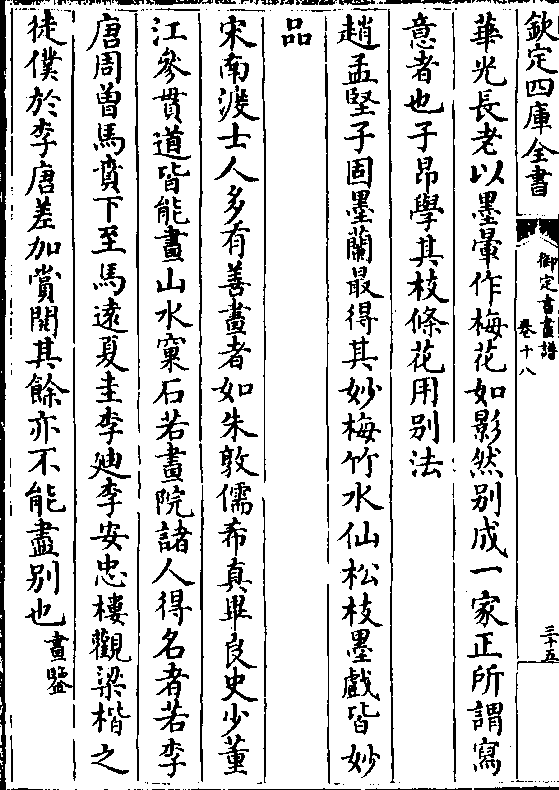 欽定四庫全書
御定書畫譜
卷十八
三十五
華光長老以墨暈作梅花如影然别成一家正所謂寫
意者也子昂學其枝條花用别法
趙孟堅子固墨蘭最得其妙梅竹水仙松枝墨戲皆妙
品
宋南渡士人多有善畫者如朱敦儒希真畢良史少董
江參貫道皆能畫山水窠石若畫院諸人得名者若李
唐周曾馬賁下至馬遠夏圭李廸李安忠樓觀梁楷之
徒僕於李唐差加賞閱其餘亦不能盡别也畫鑒